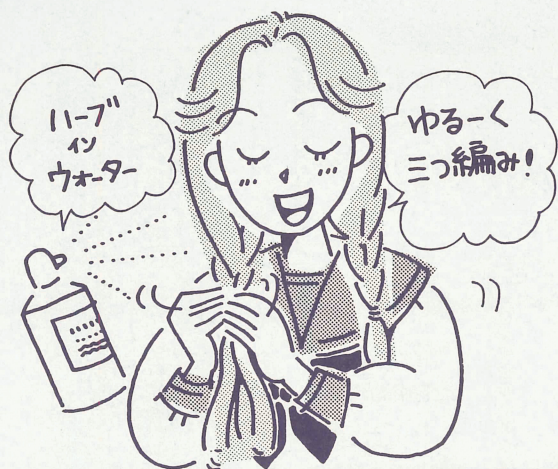 ハーブ
イン
ウォーター
ゆるーく
三つ編み!